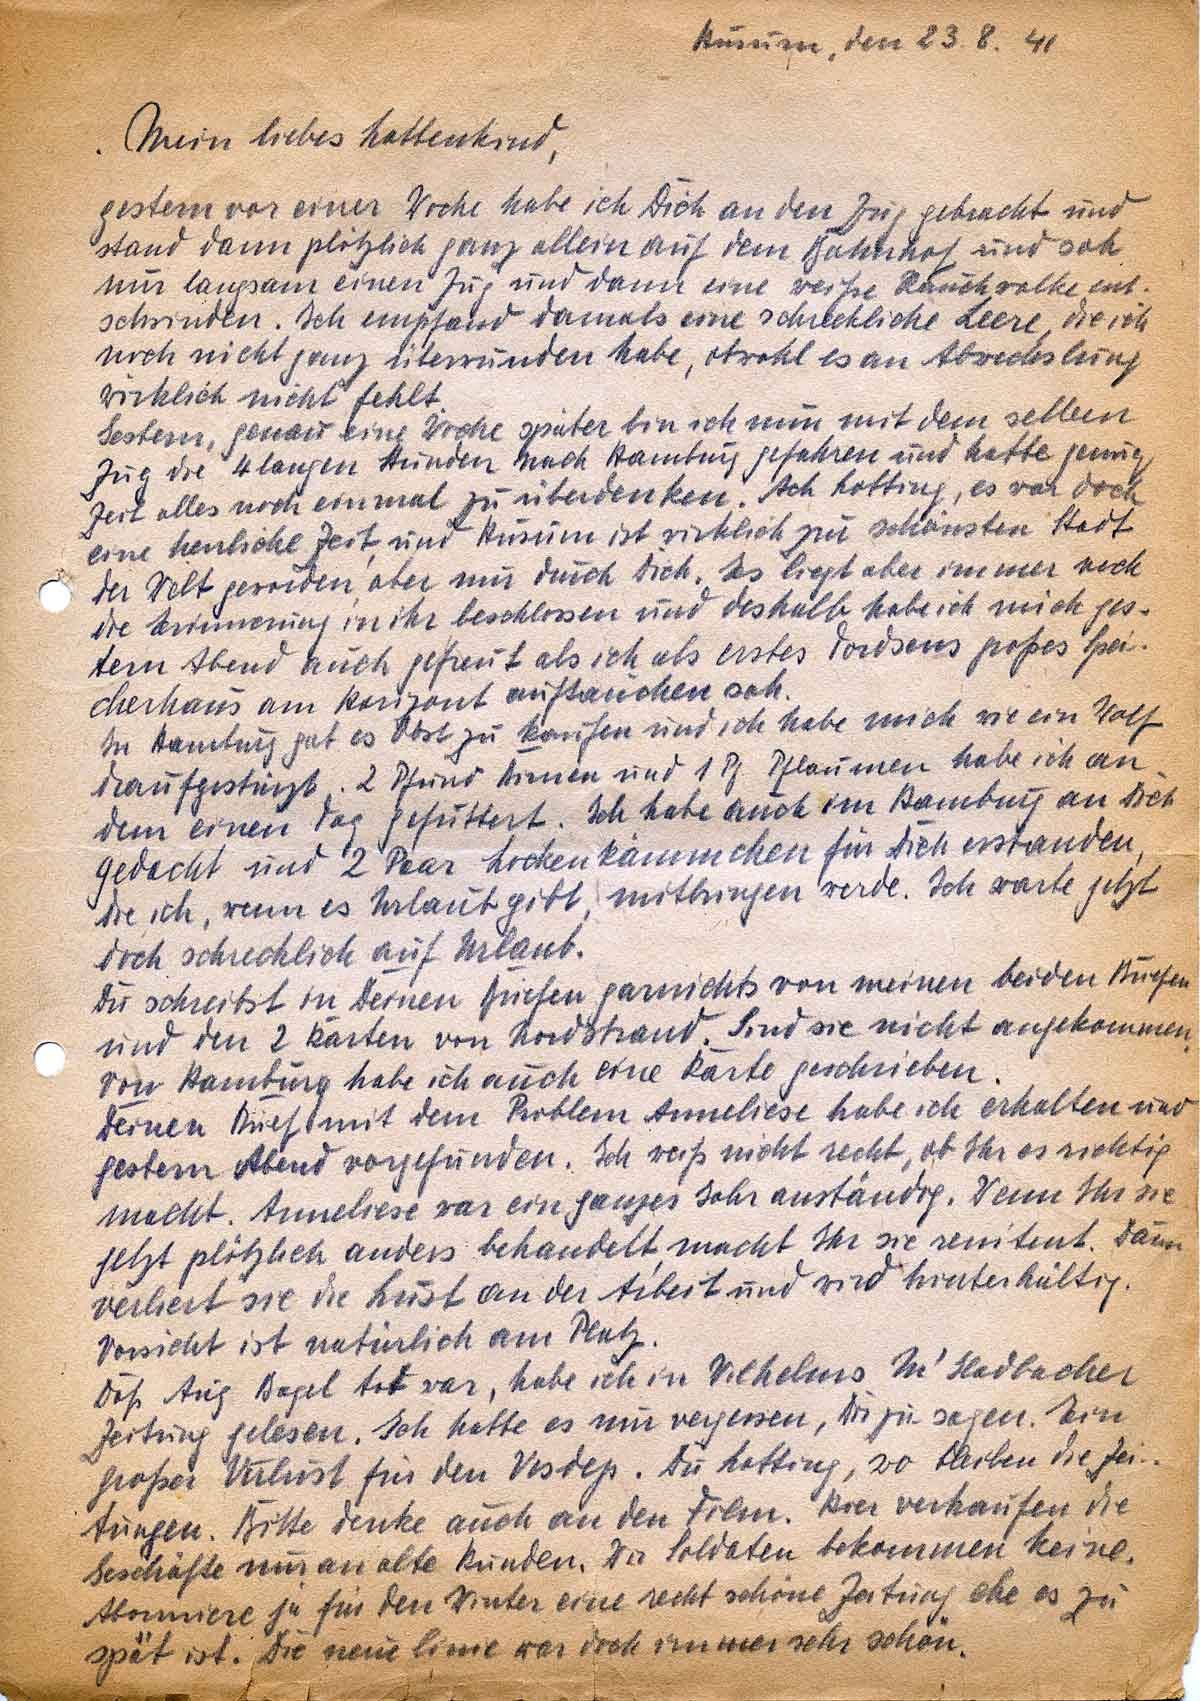 Husum, den 23. 8. 41
Mein liebes Lottenkind,
gestern vor einer Woche habe ich Dich an den Zug gebracht und
stand dann plötzlich ganz allein auf dem Bahnhof und sah
nur langsam einen Zug und dann eine weiße Rauchwolke ent-
schwinden. Ich empfand damals eine schreckliche Leere, die ich
noch nicht ganz überwunden habe, obwohl es an Abwechslung
wirklich nicht fehlt
Gestern, genau eine Woche später bin ich nun mit dem selben
Zug die 4 langen Stunden nach Hamburg gefahren und hatte genug
Zeit alles noch einmal zu überdenken. Ach Lotting, es war doch
eine herrliche Zeit, und Husum ist wirklich zur schönsten Stadt
der Welt geworden, aber nur durch Dich. Es liegt aber immer noch
die Erinnerung in ihr beschlossen und deshalb habe ich mich ges-
tern Abend auch gefreut als ich als erstes Thordsens großes Spei-
cherhaus am Horizont auftauchen sah.
In Hamburg gab es Obst zu kaufen und ich habe mich wie ein Wolf
draufgestürzt. 2 Pfund Birnen und 1 Pf. Pflaumen habe ich an
dem einen Tag gefuttert. Ich habe auch in Hamburg an Dich
gedacht und 2 Paar Lockenkämmchen für Dich erstanden,
die ich, wenn es Urlaub gibt, mitbringen werde. Ich warte jetzt
doch schrecklich auf Urlaub.
Du schreibst in Deinen Briefen garnichts von meinen beiden Briefen
und den 2 Karten von Nordstrand. Sind sie nicht angekommen.
Von Hamburg habe ich auch eine Karte geschrieben.
Deinen Brief mit dem Problem Anneliese habe ich erhalten und
gestern Abend vorgefunden. Ich weiß nicht recht, ob Ihr es richtig
macht. Anneliese war ein ganzes Jahr anständig. Wenn Ihr sie
jetzt plötzlich anders behandelt, macht Ihr sie renitent. Dann
verliert sie die Lust an der Arbeit und wird hinterhältig.
Vorsicht ist natürlich am Platz.
Daß Aug Bagel tot war, habe ich in Wilhelms M'Gladbacher
Zeitung gelesen. Ich hatte es nur vergessen, Dir zu sagen. Ein
großer Verlust für den. Du Lotting, wo bleiben die Zei-
tungen. Bitte denke auch an den Film. Hier verkaufen die
Geschäfte nur an alte Kunden. Die Soldaten bekommen keine.
Abonniere ja für den Winter eine recht schöne Zeitung ehe es zu
spät ist. Die neue Linie war doch immer sehr schön.